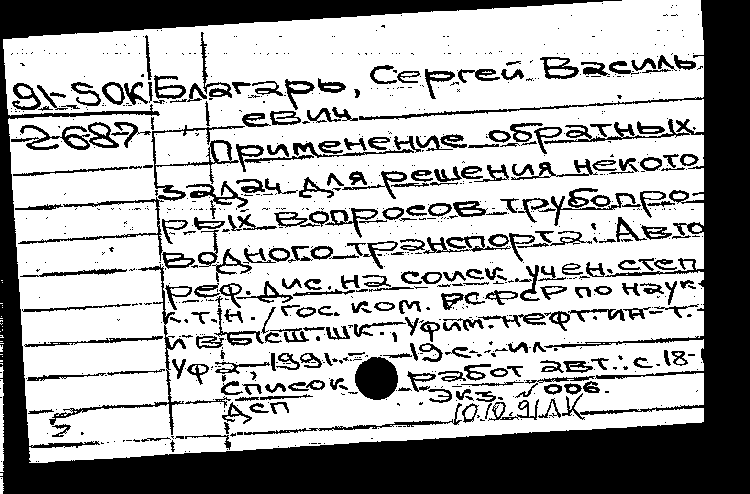 91-50К Благарь, Сергей Василь
2687 евич.
Применение обратных
задач для решения некото
рых вопросов трубопро-
водного транспорта: Авто
реф. дис. на соиск. учен. степ
к.т.н. / Гос. ком. РСФСР по наук.
и высш. шк., Уфим. нефт. ин-т. -
Уфа, 1991. - 19 с.: ил.
Список работ авт.: с. 18-1
ДСП Экз. № 006.
5. 10.10.91 ЛК